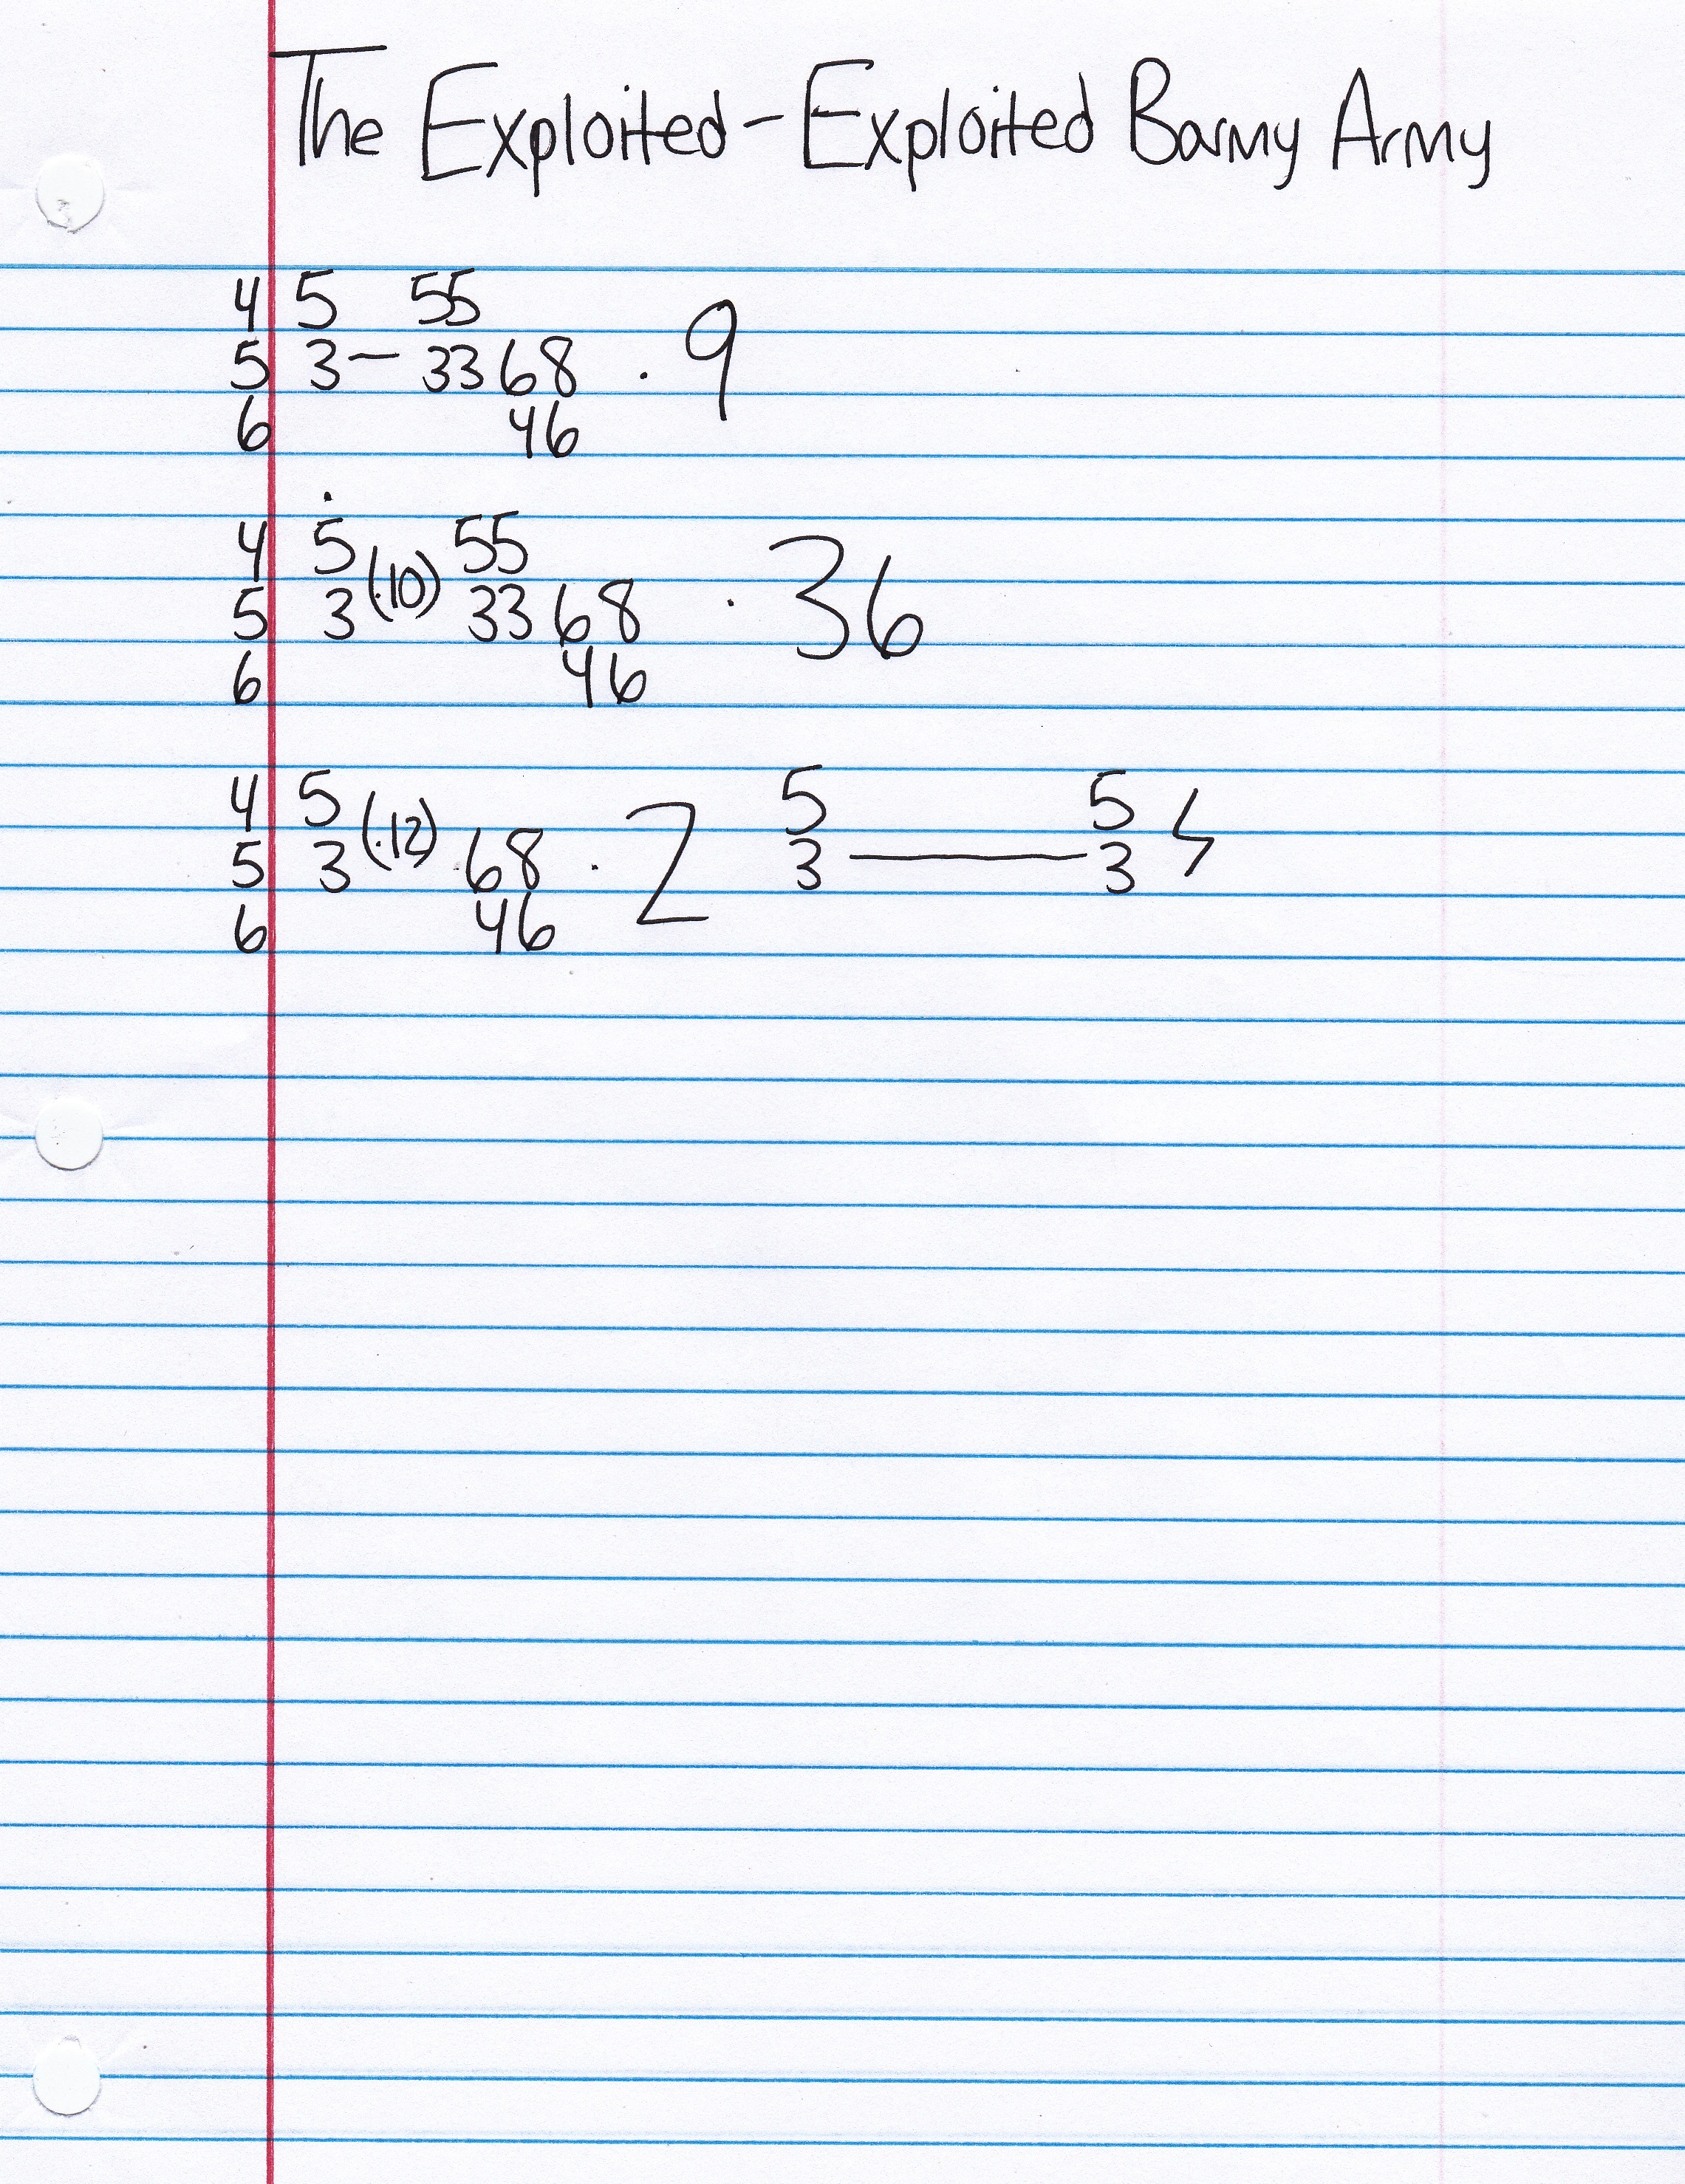 The Exploited - Exploited Barmy Army
4 5 55
5 3 — 33 68 . 9
6 46
4 5 55
5 3 (.10) 33 68 . 36
6 46
4 5 5 5
5 3 (.12) .68 . 2 3 — 3
6 46